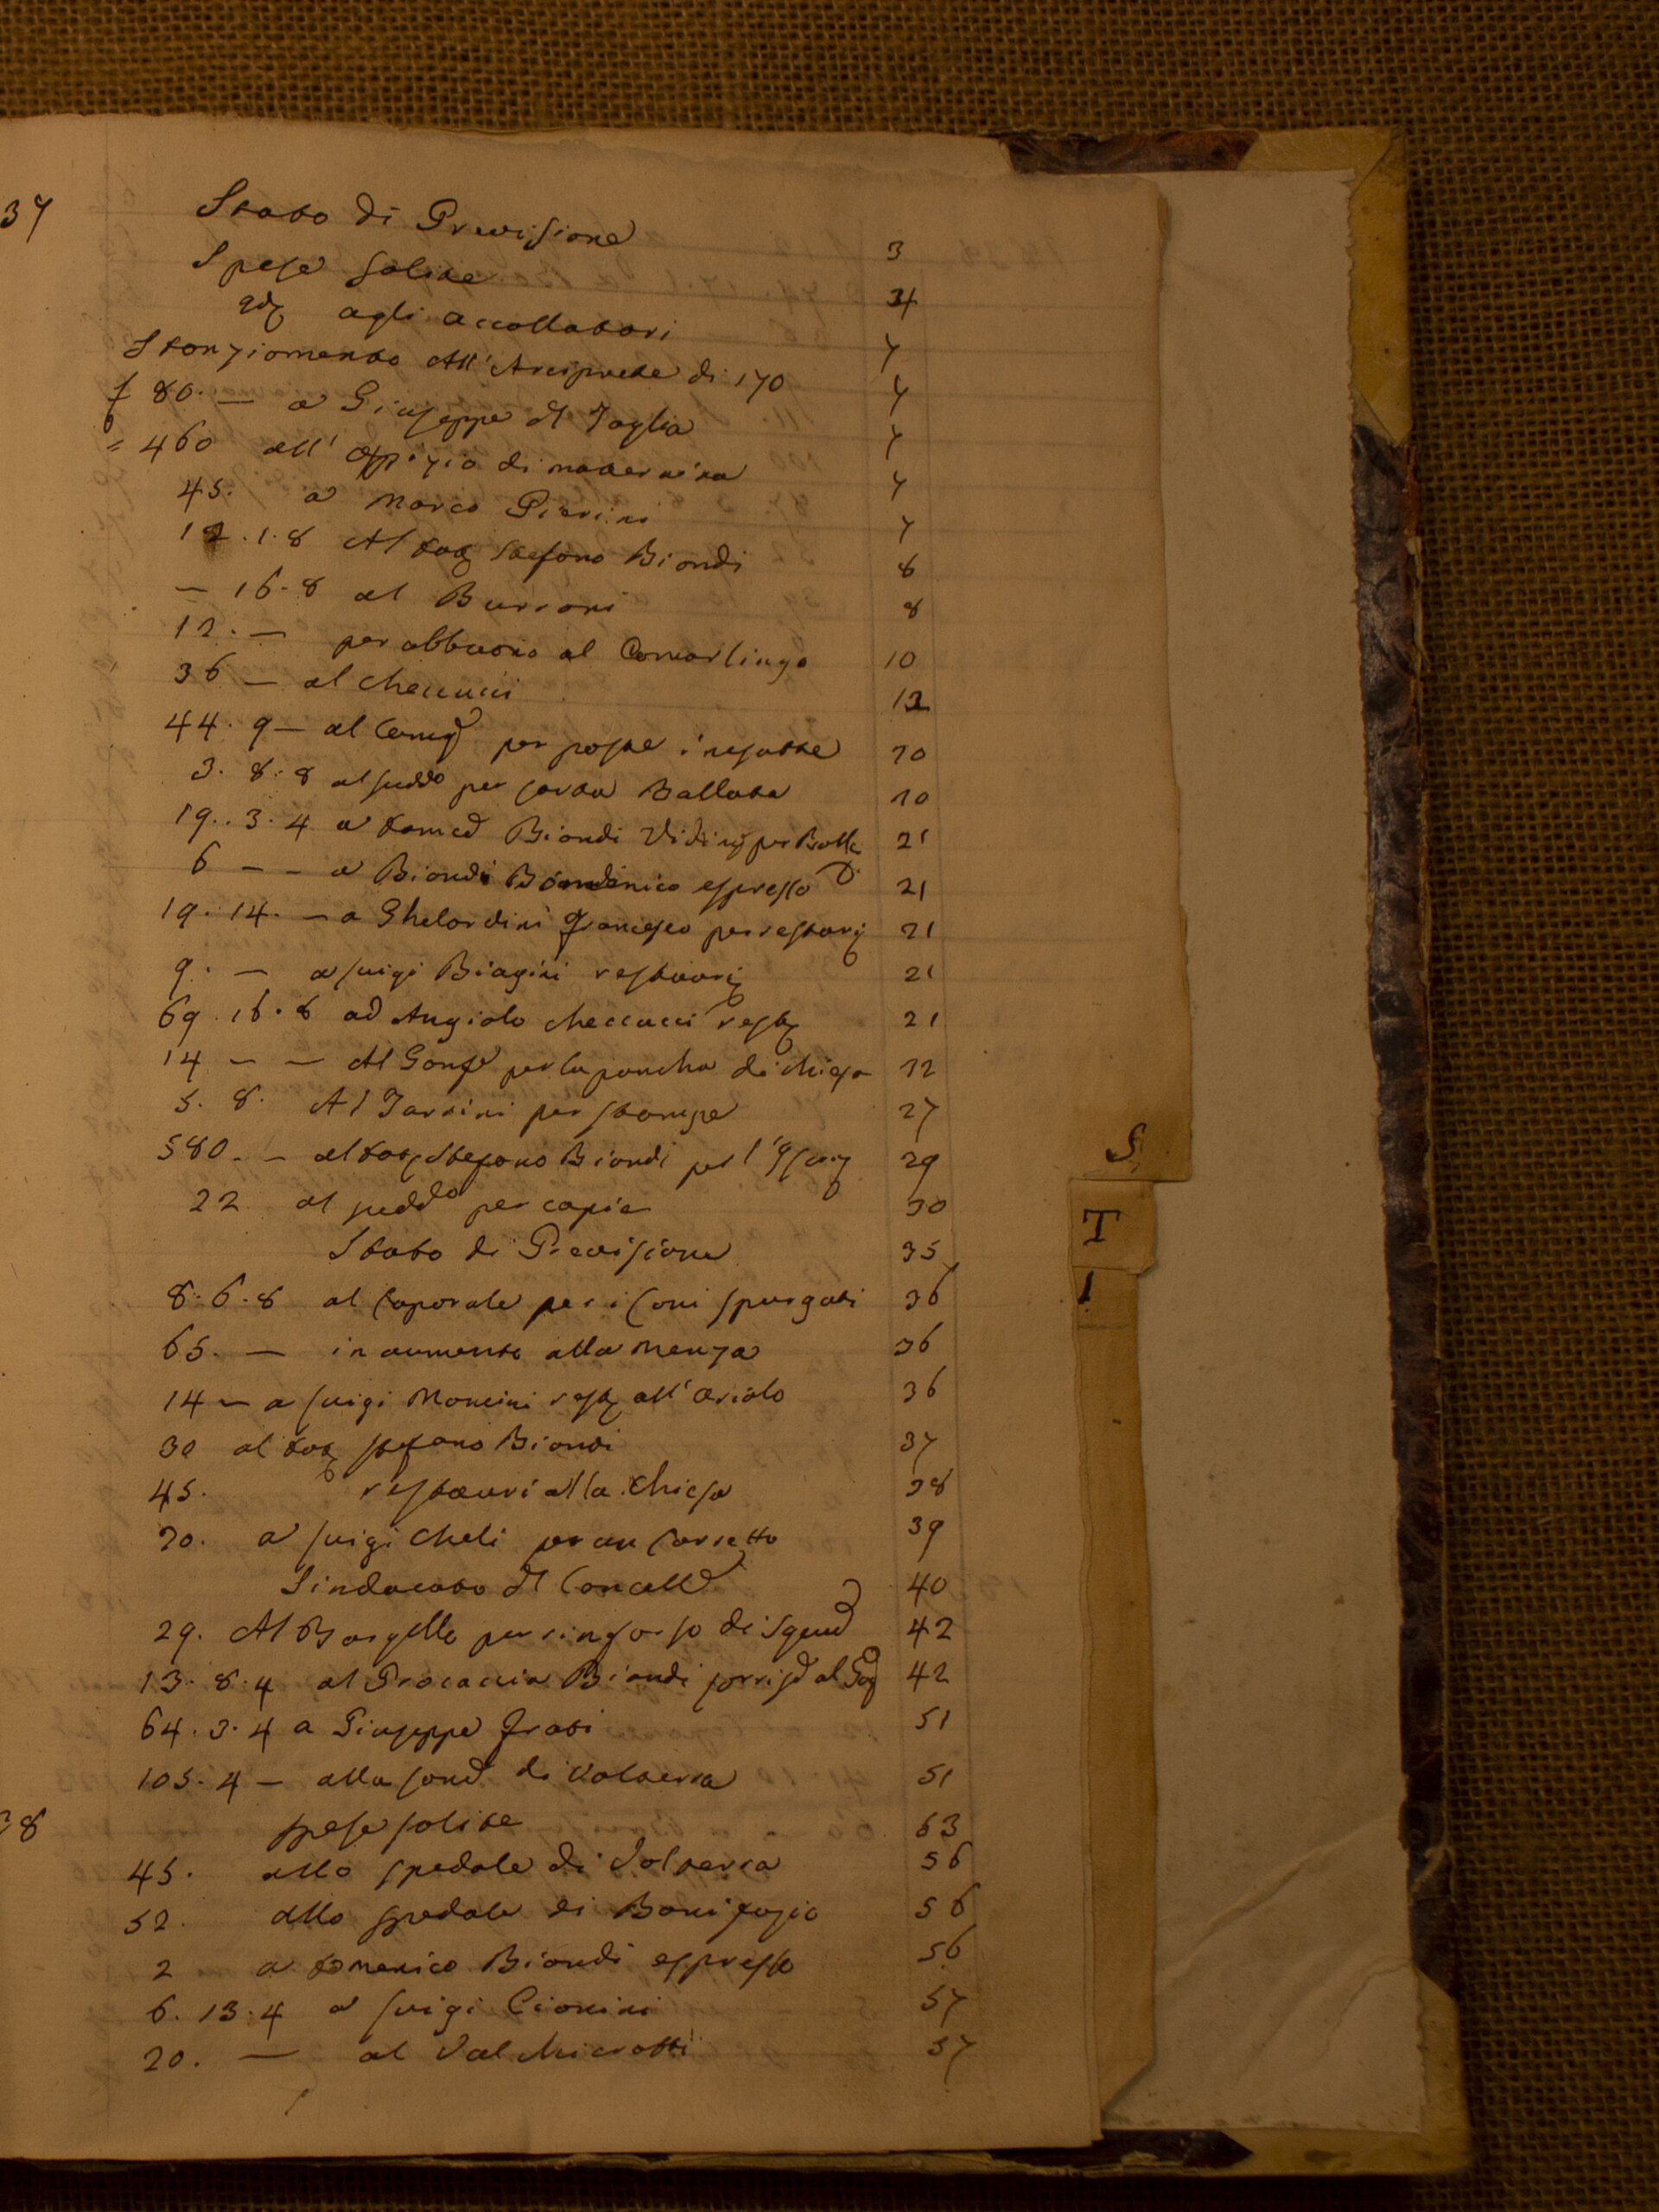 37 Stato di Previsione 3
Spese solite 34
agli accollatari 7
Stanziamento All'Arciprete di 170 7
f 80. — a Giuseppe del Taglia 7
" 460 all' Offizio di maternita 7
45. a Marco Pierini 7
12.1.8 Al Stefano Biondi 8
— 16.8 al Burroni 8
12. — per abbuono al Camarlingo 10
36 — al Checcucci 12
44. 9 — al per poste inesatte 20
3. 8. 8 al sudd.o per carta Ballata 20
19. 3. 4 a Biondi 21
6 — — a Biondi Domenico espresso 21
19. 14. — a Ghelardini Francesco per 21
9. — a Luigi Biagini 21
69. 16. 8 ad Angiolo Checcucci rest 21
14 — — Al per la pancha di chiesa 22
5. 8. Al Tarrini per stampe 27
580. — al Stefano Biondi per l' 29
22 al sudd.o per copie 30
Stato di Previsione 35
8. 6. 8 al Caporale per i Cani spurgati 36
65. — in aumento alla Menza 36
14 — a Luigi Mancini rest all' oriolo 36
30 al Stefano Biondi 37
45. restauri alla chiesa 38
20. a Luigi Cheli per un Corsetto 39
Sindacato del Cancell 40
29. Al Bargello per rinforso di 42
13. 8. 4 al Procaccia Biondi al 42
64. 3. 4 a Giuseppe Frati 51
105. 4 — alla di Volterra 51
38 spese solite 63
45. allo spedale di Volterra 56
52. allo spedale di Bonifazio 56
2 a Domenico Biondi espresso 56
6. 13. 4 a Luigi Cionini 57
20. — al Dal Chicrotti 57
S
T